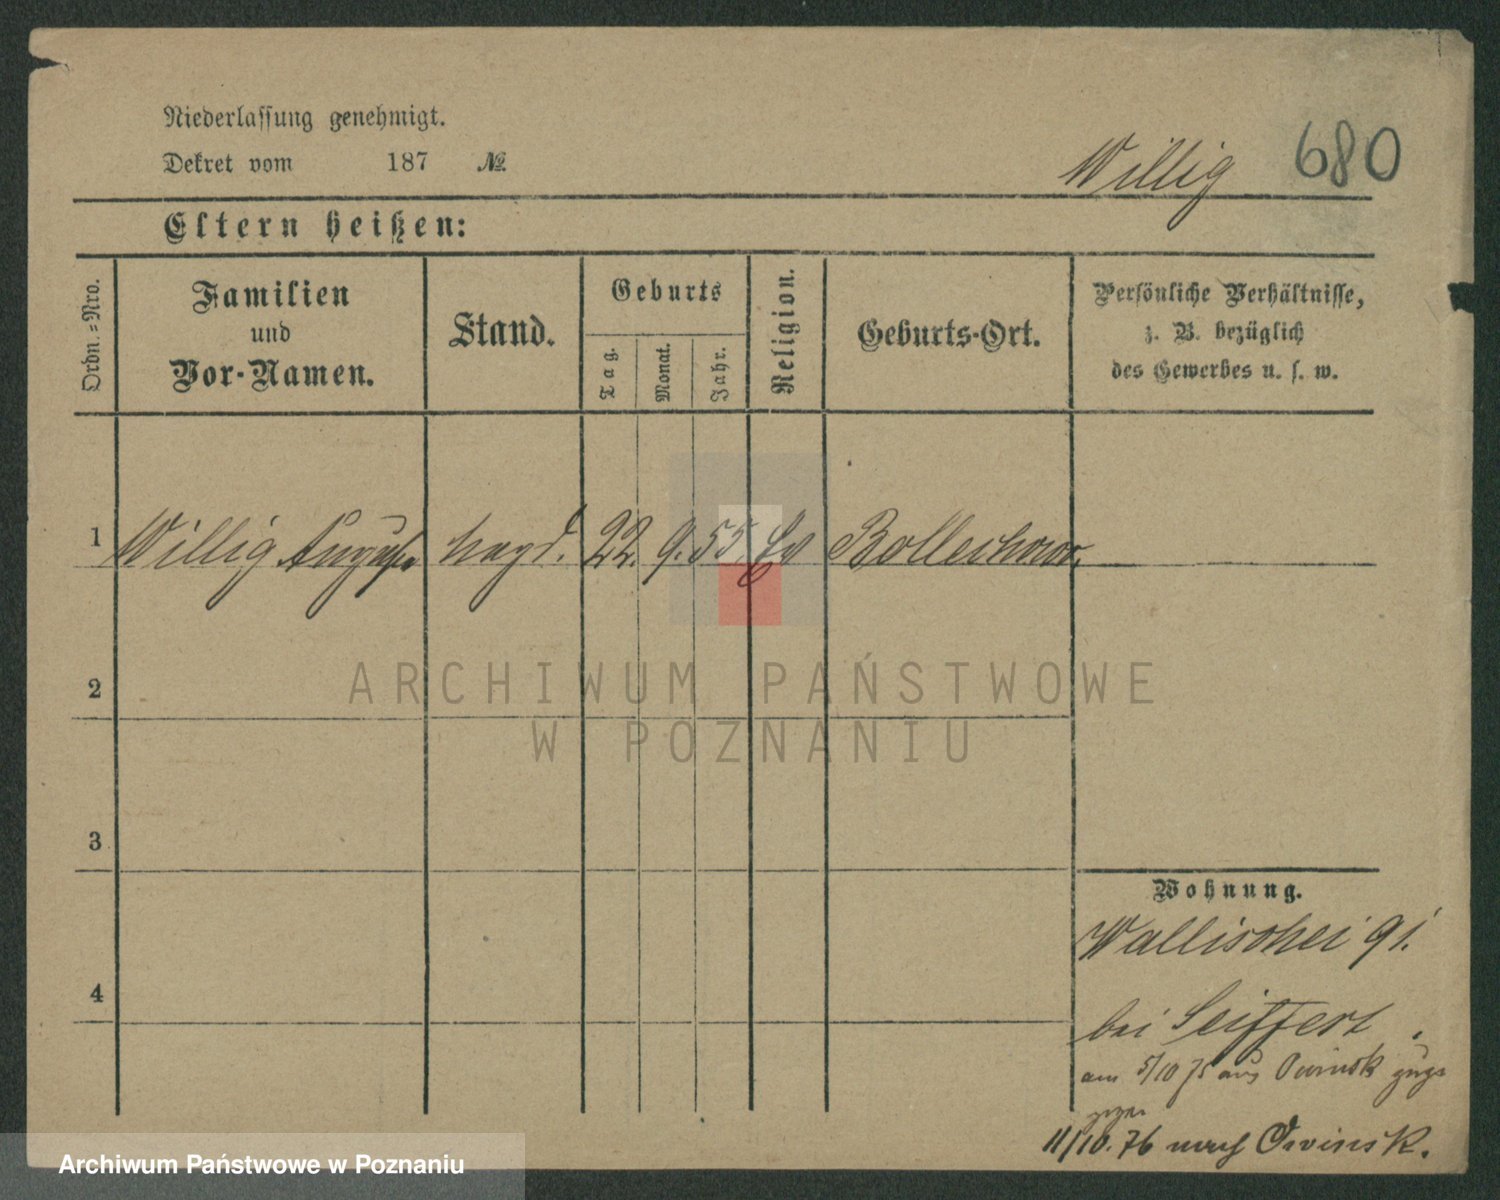 Niederlassung genehmigt.
Dekret vom 187 №
Willig 680
Eltern heißen:
Ordn.=Nro.
Familien
und
Vor-Namen.
Stand.
Geburts
Tag.
Monat.
Jahr.
Religion.
Geburts-Ort.
Persönliche Verhältnisse,
z. B. bezüglich
des Gewerbes u. s. w.
1 Willig 22. 9. 55 Ev Bollechowo.
ARCHIWUM PAŃSTWOWE
W POZNANIU
2
3
4
Wohnung.
Wallischei 91.
bei Seiffert
am 5/10 75 aus Owinsk
11/10. 76 nach Owinsk.
Archiwum Państwowe w Poznaniu